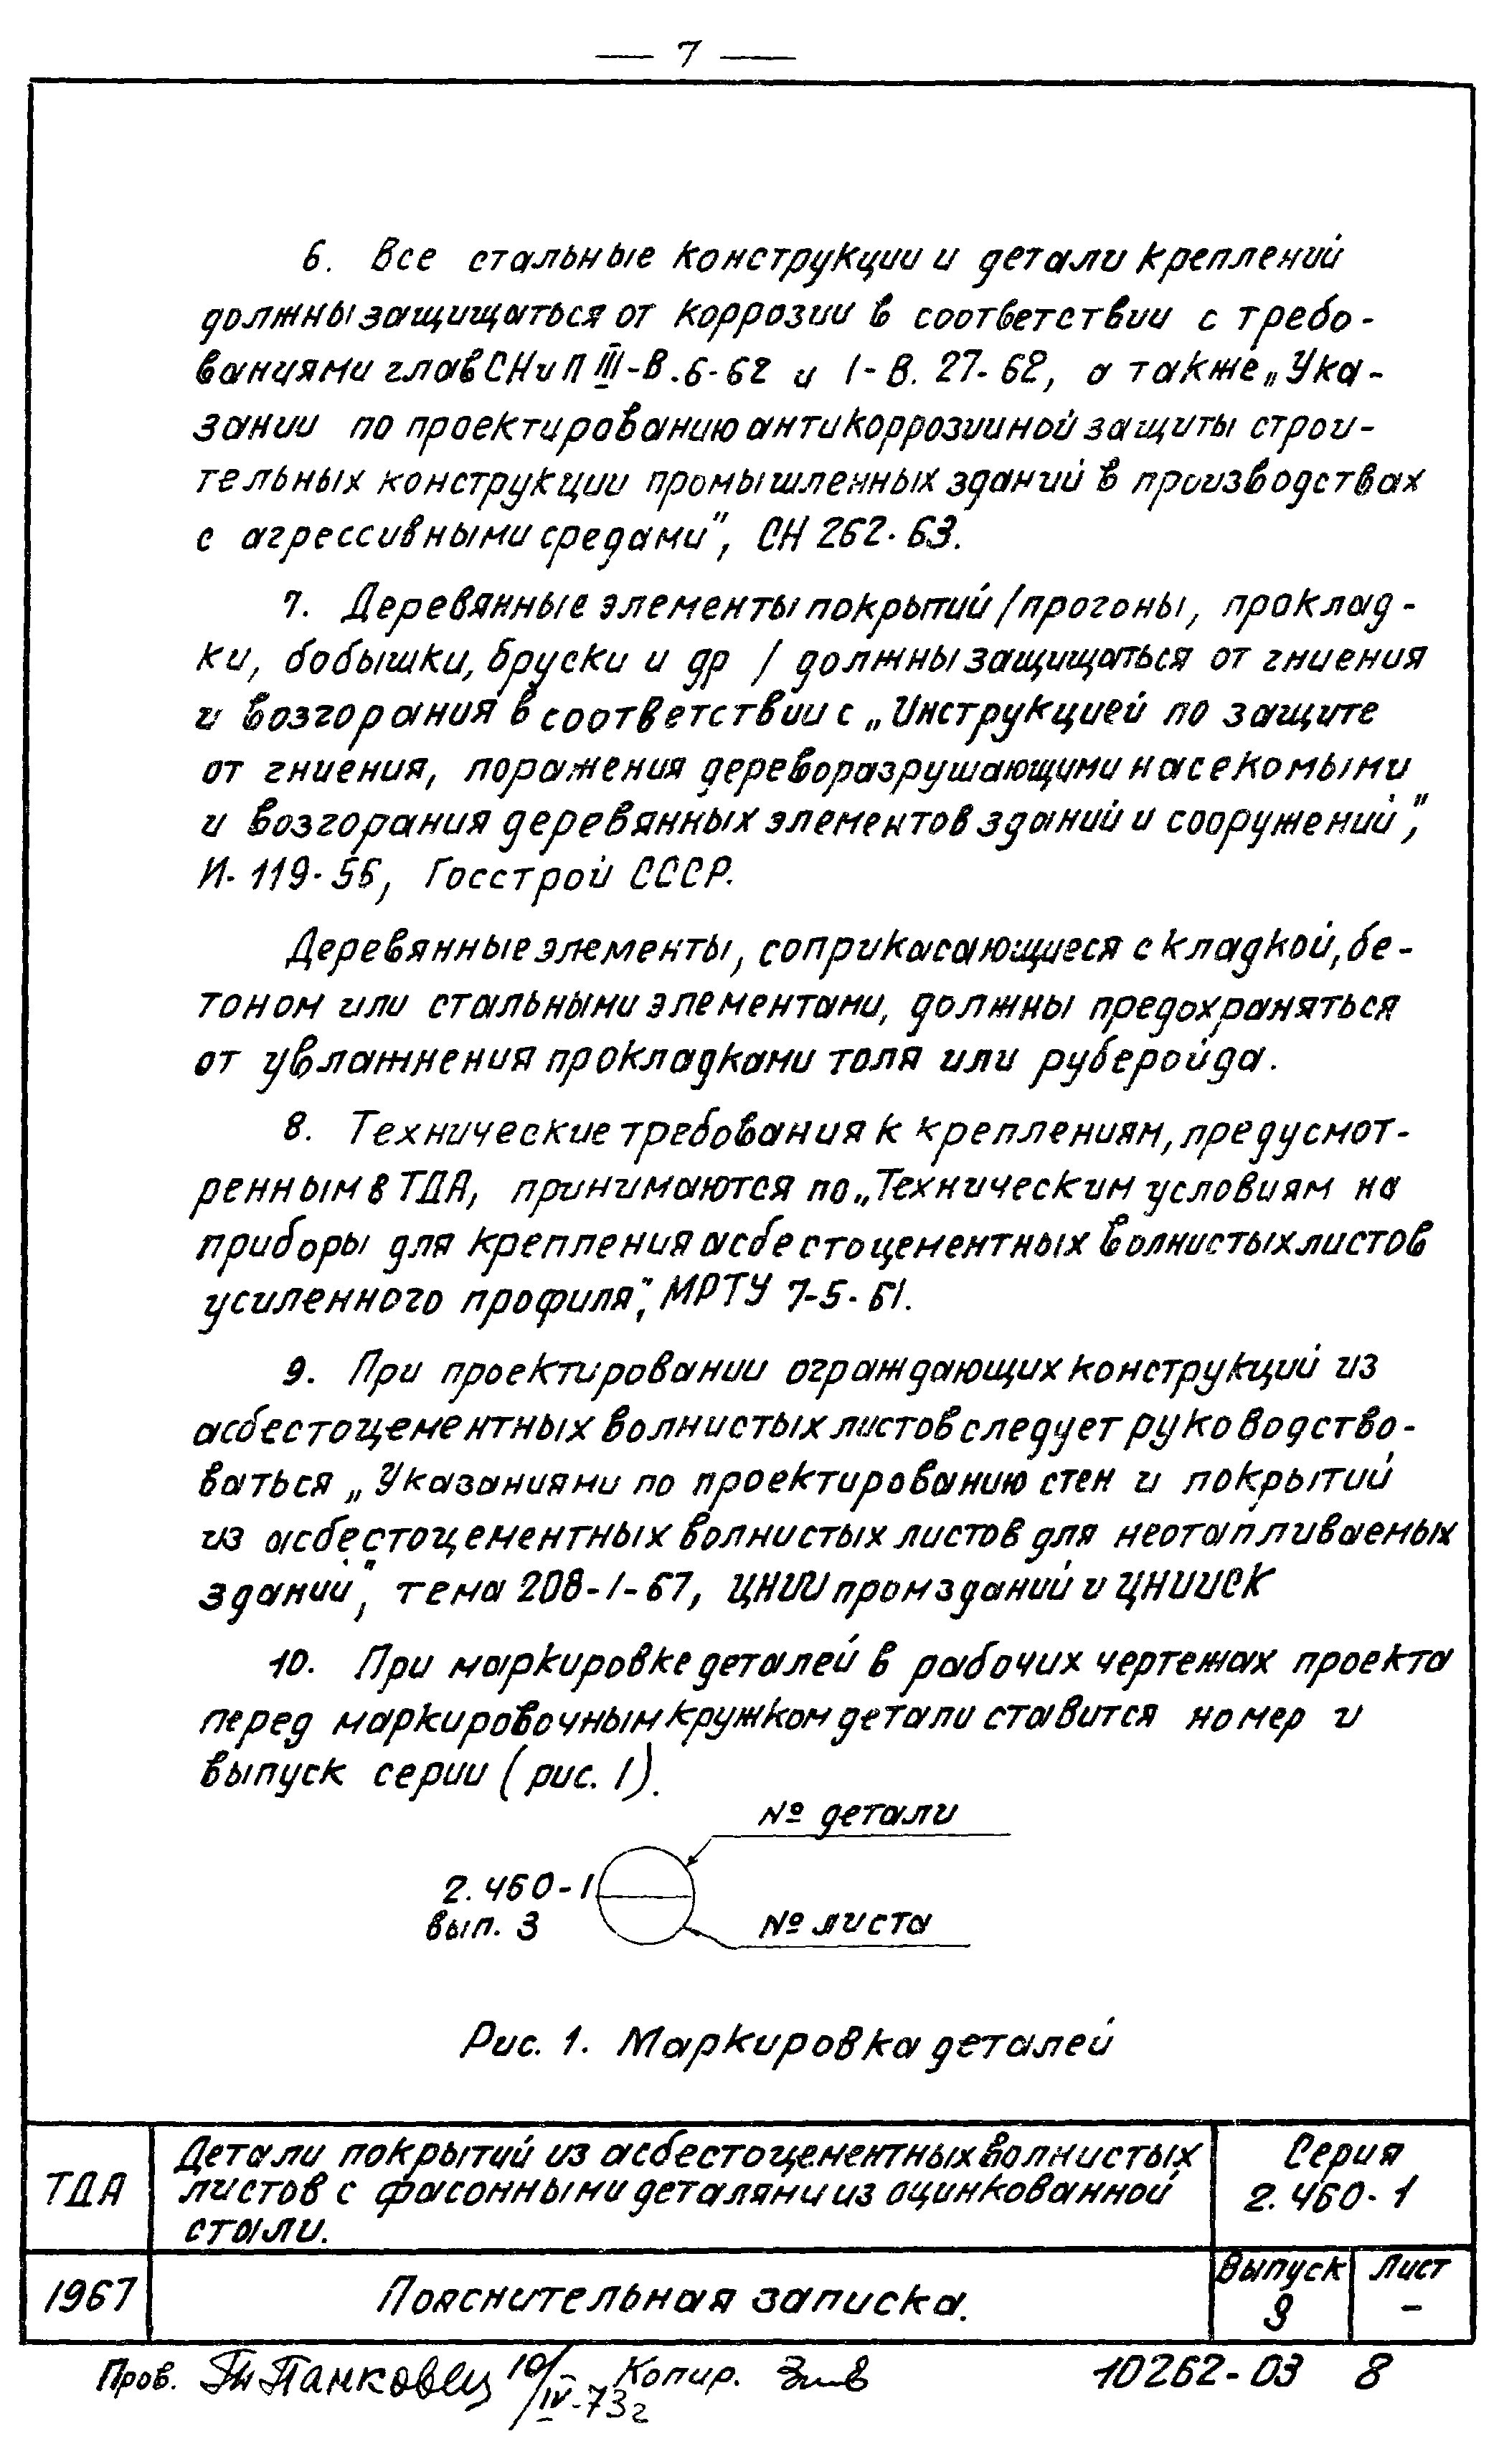 — 7 —
6. Все стальные конструкции и детали креплений
должны защищаться от коррозии в соответствии с требо-
ваниями глав СНиП III-В.6-62 и I-В.27-62, а также „Ука-
зании по проектированию антикоррозииной защиты строи-
тельных конструкции промышленных зданий в производствах
с агрессивными средами", СН 262-63.
7. Деревянные элементы покрытий /прогоны, проклад-
ки, бобышки, бруски и др / должны защищаться от гниения
и возгорания в соответствии с „Инструкцией по защите
от гниения, поражения дереворазрушающими насекомыми
и возгорания деревянных элементов зданий и сооружений",
И-119-56, Госстрой СССР.
Деревянные элементы, соприкасающиеся с кладкой, бе-
тоном или стальными элементами, должны предохраняться
от увлажнения прокладками толя или рубероида.
8. Технические требования к креплениям, предусмот-
ренным в ТДА, принимаются по „Техническим условиям на
приборы для крепления асбестоцементных волнистых листов
усиленного профиля", МРТУ 7-5-61.
9. При проектировании ограждающих конструкций из
асбестоцементных волнистых листов следует руководство-
ваться „Указаниями по проектированию стен и покрытий
из асбестоцементных волнистых листов для неотапливаемых
зданий", тема 208-1-67, ЦНИИпромзданий и ЦНИИСК
10. При маркировке деталей в рабочих чертежах проекта
перед маркировочным кружком детали ставится номер и
выпуск серии (рис. 1).
№ детали
2.460-1
вып. 3
№ листа
Рис. 1. Маркировка деталей
ТДА
Детали покрытий из асбестоцементных волнистых
листов с фасонными деталями из оцинкованной
стали.
Серия
2.460-1
1967
Пояснительная записка.
Выпуск
3
Лист
–
Пров. Панковец 10/IV-73г Копир. 10262-03 8